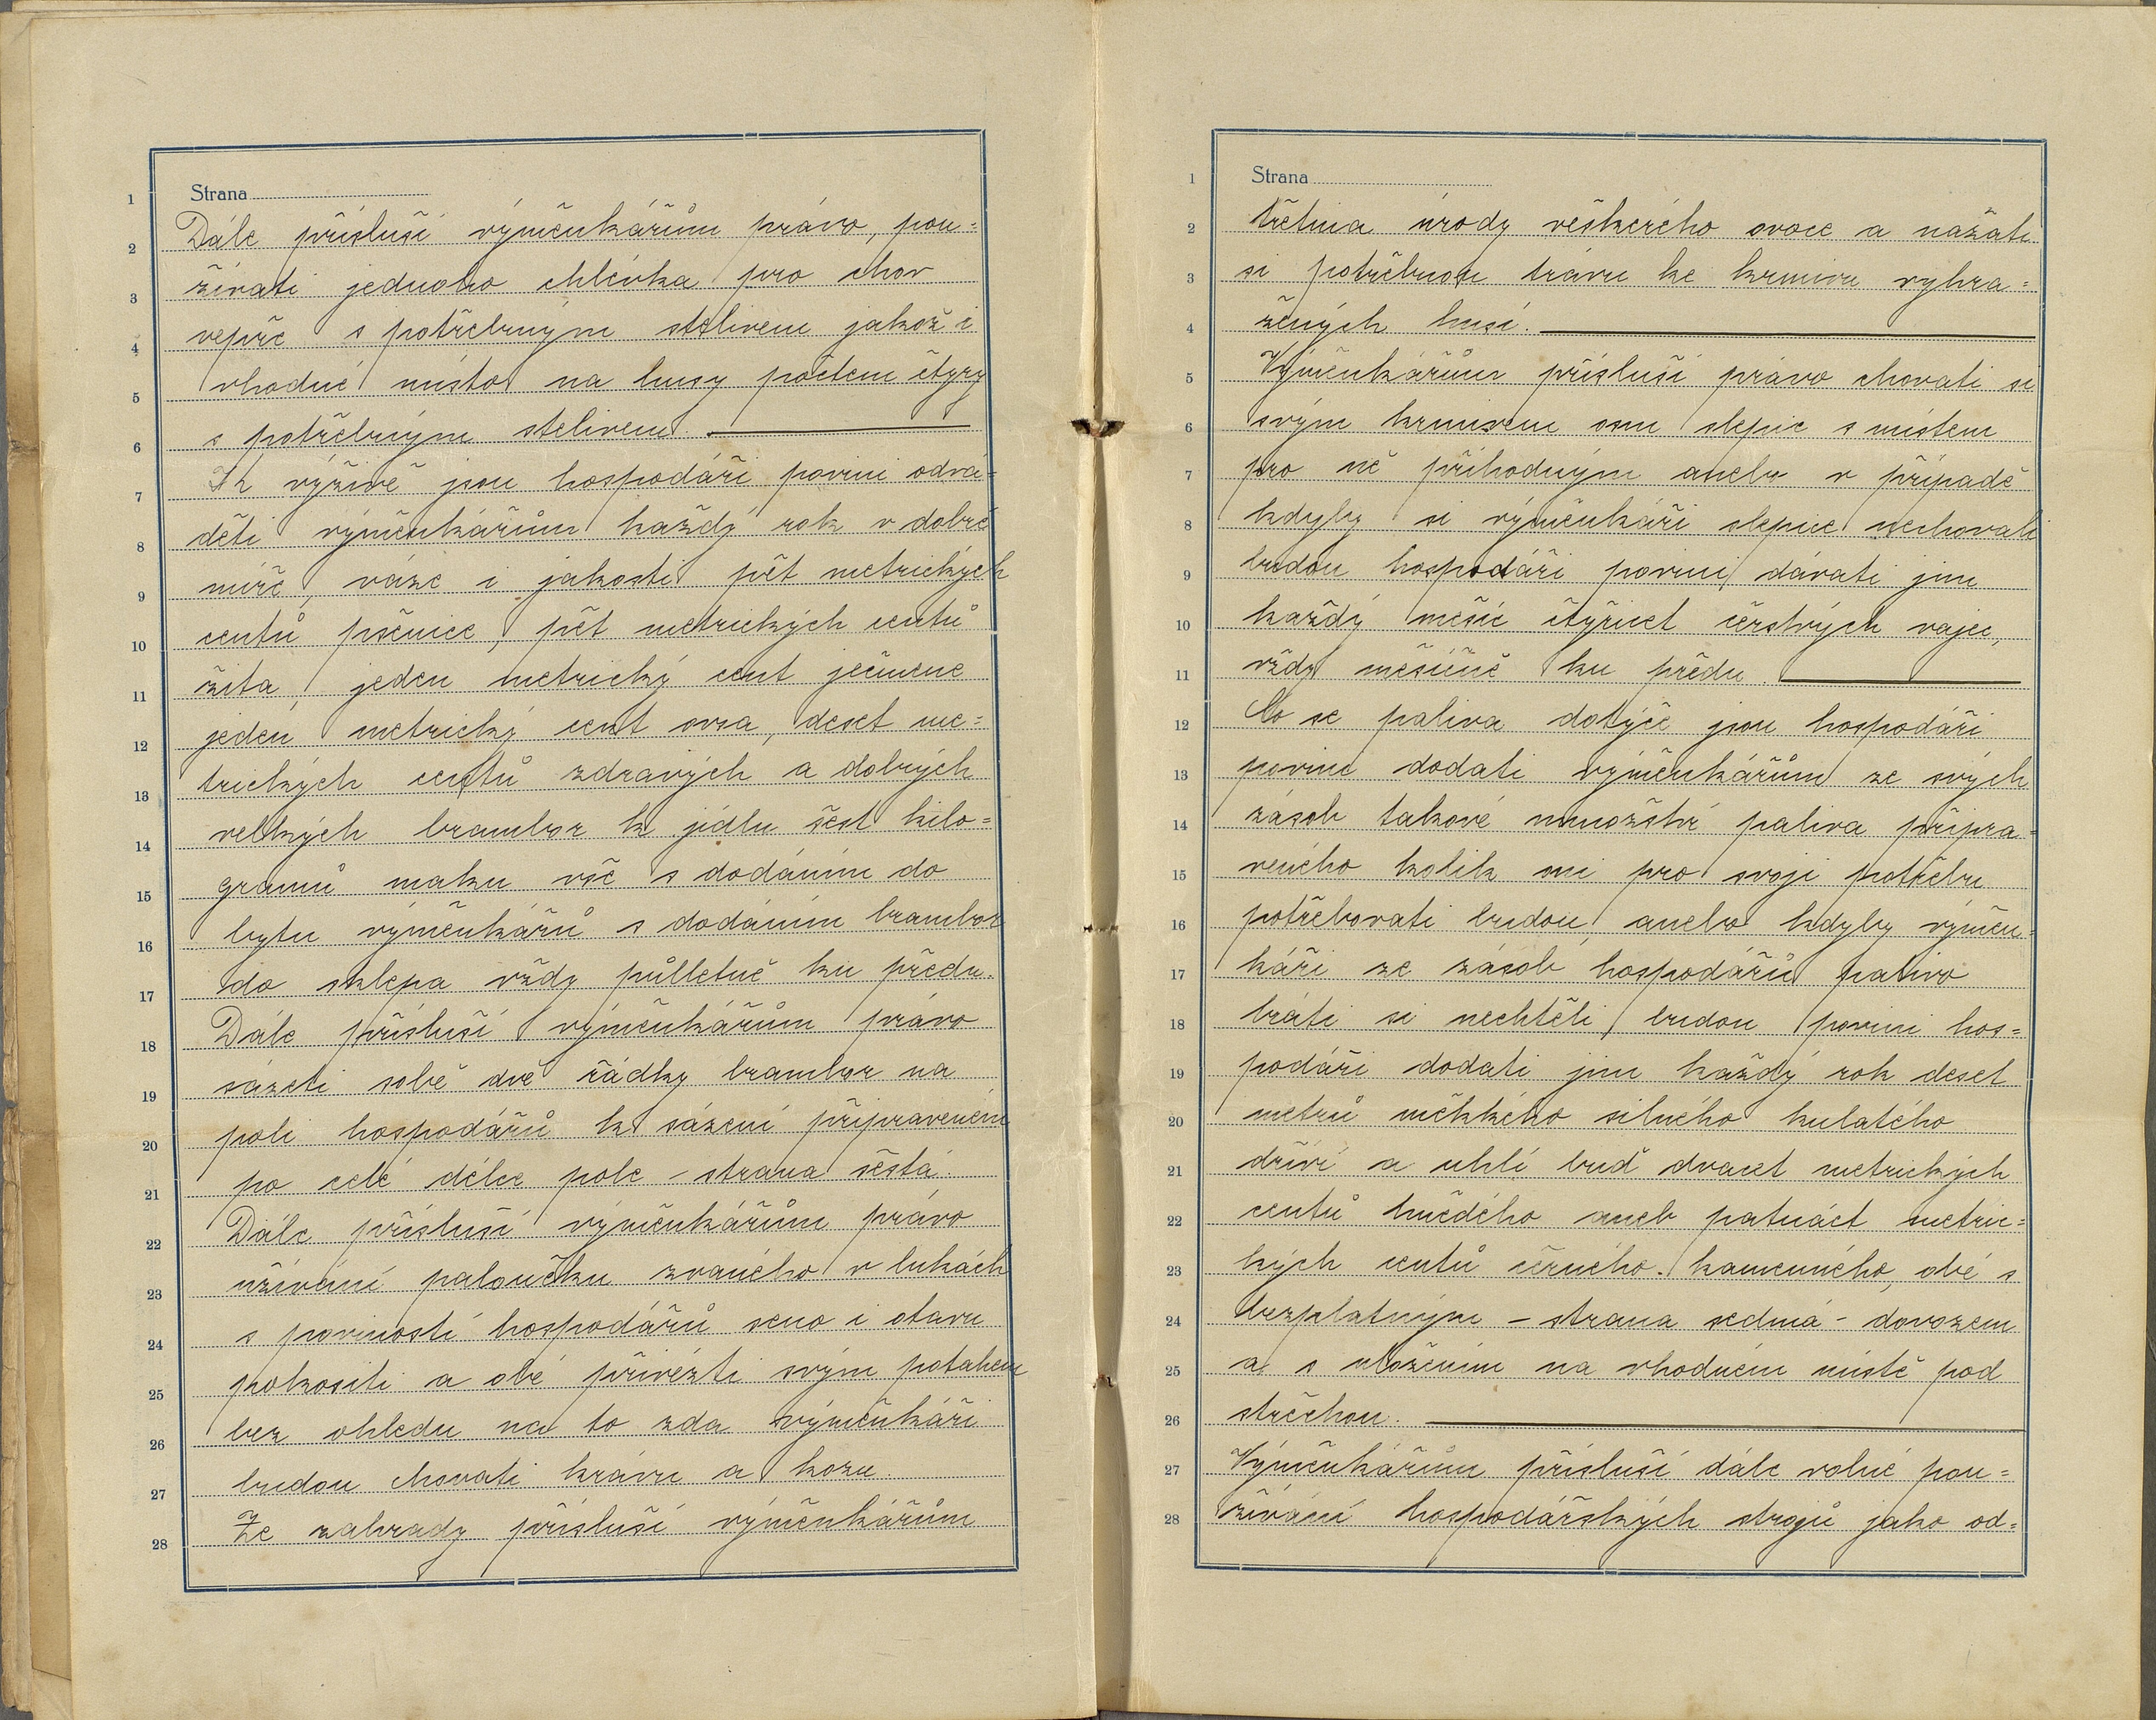 Strana
Dále přísluší výměnkářům právo, pou=
žívati jednoho chlévka pro chov
vepře s potřebným stelivem jakož i
vhodné místo na husy počtem čtyry
s potřebným stelivem.
K výživě jsou hospodáři povini odvá=
děti výměnkářům každý rok v dobré
míře, váze i jakosti pět metrických
centů pšenice, pět metrických centů
žita, jeden metrický cent ječmene
jeden metrický cent ovsa, deset me=
trických centů zdravých a dobrých
velkých brambor k jídlu šest kilo=
gramů maku vše s dodáním do
bytu výměnkářů s dodáním brambor
do sklepa vždy půlletně ku předu.
Dále přísluší výměnkářům právo
sázeti sobě dvě řádky brambor na
poli hospodářů k sázení připraveném
po celé délce pole – strana šestá.
Dále přísluší výměnkářům právo
užívání paloučku zvaného v lukách
s poviností hospodářů seno i otavu
pokositi a obé přivézti svým potahem
bez ohledu na to zda výměnkáři
budou chovati krávu a kozu.
Ze zahrady přísluší výměnkářům
Strana
třetina úrody veškerého ovoce a nažati
si potřebnou trávu ke krmivu vyhra=
žených husí.
Výměnkářům přísluší právo chovati si
svým krmivem osm slepic s místem
pro ně příhodným anebo v případě
kdyby si výměnkáři slepice nechovali
budou hospodáři povini dávati jim
každý měsíc čtyřicet čerstvých vajec,
vždy měsíčně ku předu.
Co se paliva dotýče jsou hospodáři
povini dodati výměnkářům ze svých
zásob takové množství paliva připra=
veného kolik oni pro svoji potřebu
potřebovati budou, anebo kdyby výměn=
káři ze zásob hospodářů palivo
bráti si nechtěli budou povini hos=
podáři dodati jim každý rok deset
metrů měkkého silného kulatého
dříví a uhlí buď dvacet metrických
centů hnědého aneb patnáct metric=
kých centů černého kamenného, obé s
bezplatným – strana sedmá – dovozem
a s uložením na vhodném místě pod
střechou.
Výměnkářům přísluší dále volné pou=
žívání hospodářských strojů jako od=
1
2
3
4
5
6
7
8
9
10
11
12
13
14
15
16
17
18
19
20
21
22
23
24
25
26
27
28
1
2
3
4
5
6
7
8
9
10
11
12
13
14
15
16
17
18
19
20
21
22
23
24
25
26
27
28